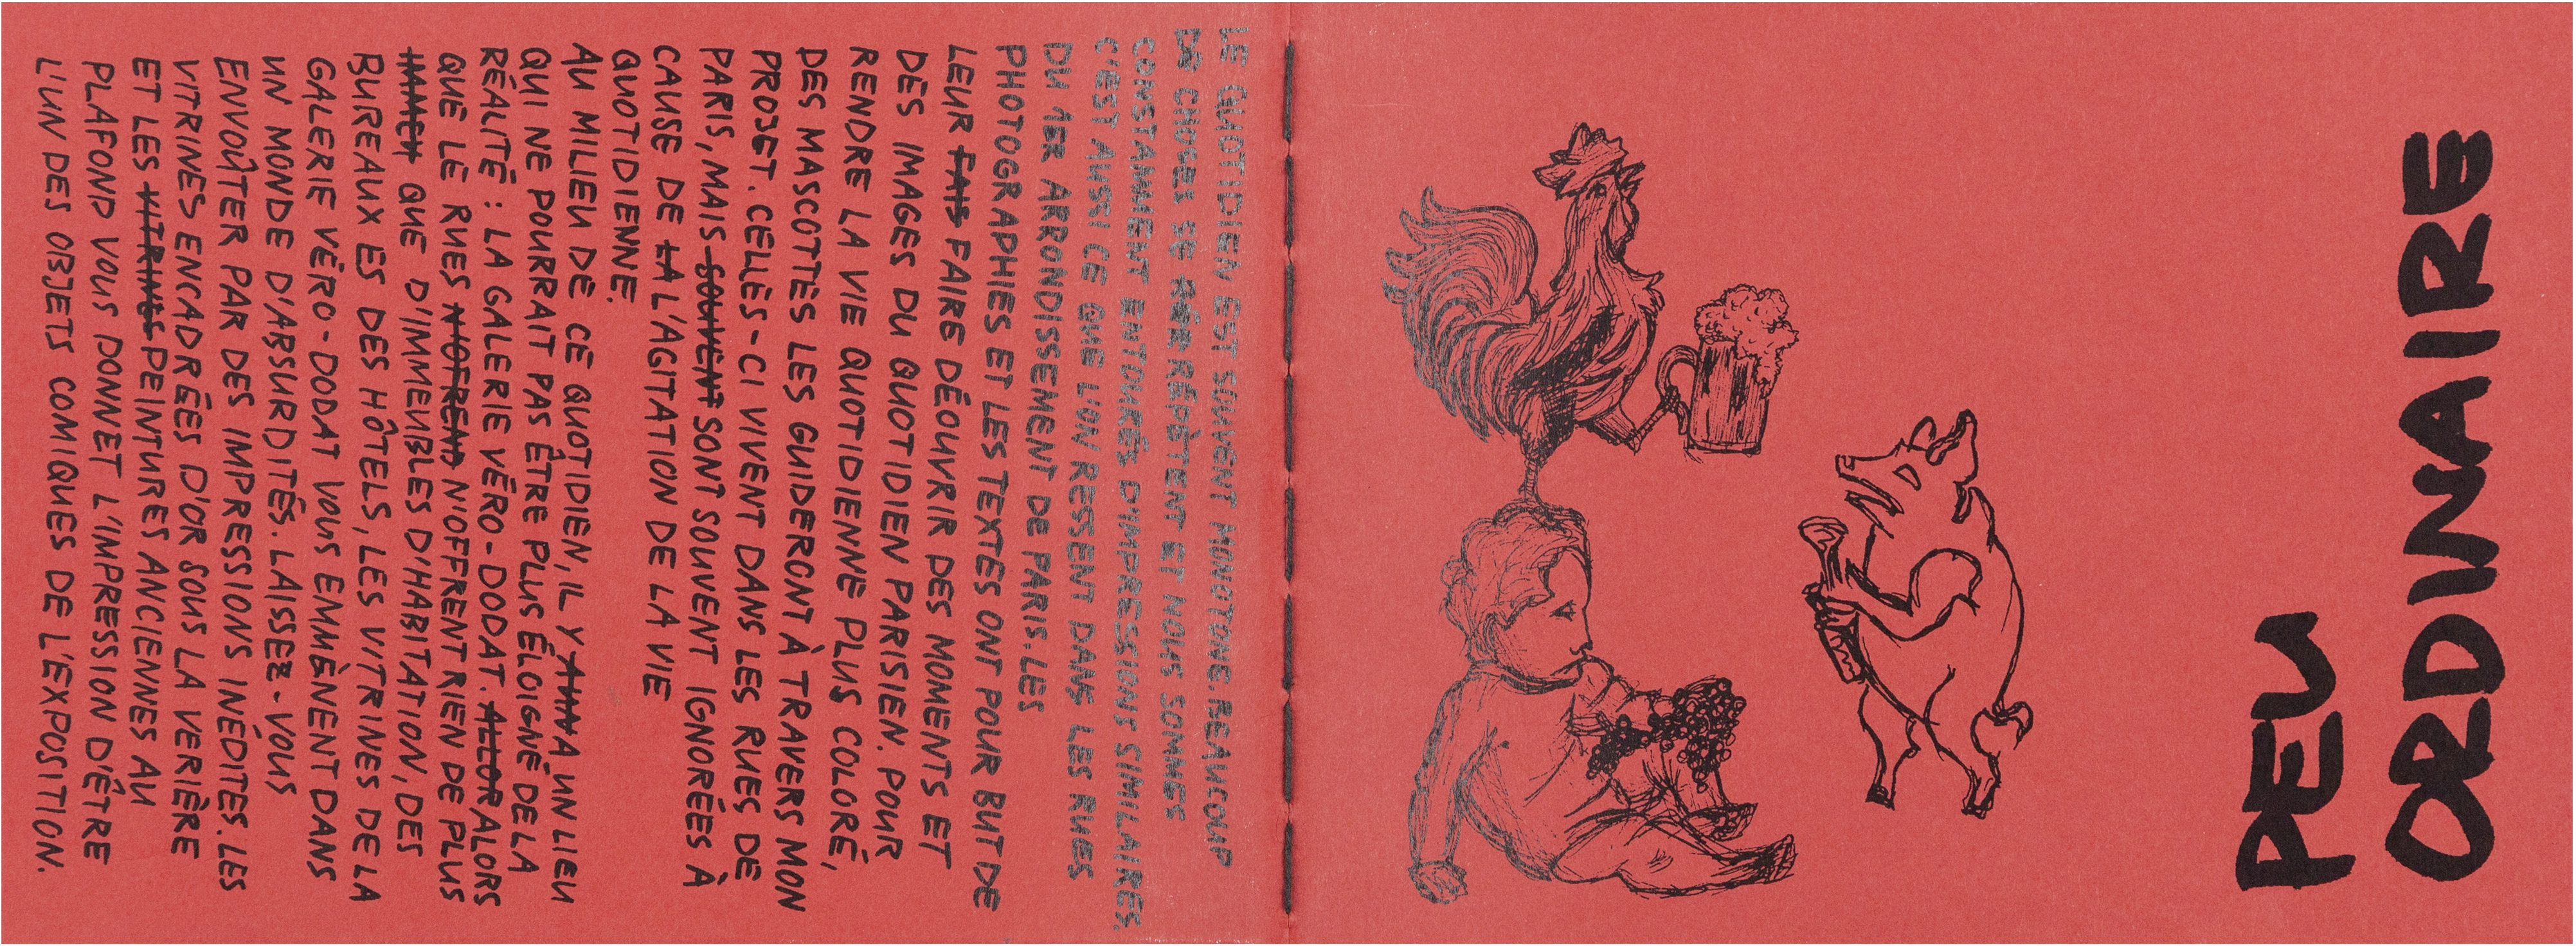 PEU
ORDINAIRE
LE QUOTIDIEN EST SOUVENT MONOTONE. BEAUCOUP
DE CHOSES SE RÉPÈTENT ET NOUS SOMMES
CONSTAMMENT ENTOURÉS D'IMPRESSIONS SIMILAIRES.
C'EST AUSSI CE QUE L'ON RESSENT DANS LES RUES
DU 1ER ARRONDISSEMENT DE PARIS. LES
PHOTOGRAPHIES ET LES TEXTES ONT POUR BUT DE
LEUR FAIS FAIRE DÉOUVRIR DES MOMENTS ET
DES IMAGES DU QUOTIDIEN PARISIEN. POUR
RENDRE LA VIE QUOTIDIENNE PLUS COLORÉ,
DES MASCOTTES LES GUIDERONT À TRAVERS MON
PROJET. CELLES-CI VIVENT DANS LES RUES DE
PARIS, MAIS SOUVENT SONT SOUVENT IGNORÉES À
CAUSE DE LA L'AGITATION DE LA VIE
QUOTIDIENNE.
AU MILIEU DE CE QUOTIDIEN, IL Y A UN LIEU
QUI NE POURRAIT PAS ÊTRE PLUS ÉLOIGNÉ DE LA
RÉALITÉ : LA GALERIE VÉRO-DODAT. ALLOR ALORS
QUE LE RUES N'OFREND N'OFFRENT RIEN DE PLUS
QUE D'IMMEUBLES D'HABITATION, DES
BUREAUX ES DES HÔTELS, LES VITRINES DE LA
GALERIE VÉRO-DODAT VOUS EMMÈNENT DANS
UN MONDE D'ABSURDITÉS. LAISSEZ-VOUS
ENVOÛTER PAR DES IMPRESSIONS INÉDITES. LES
VITRINES ENCADRÉES D'OR SOUS LA VERIÈRE
ET LES VITRINES PEINTURES ANCIENNES AU
PLAFOND VOUS DONNET L'IMPRESSION D'ÊTRE
L'UN DES OBJETS COMIQUES DE L'EXPOSITION.